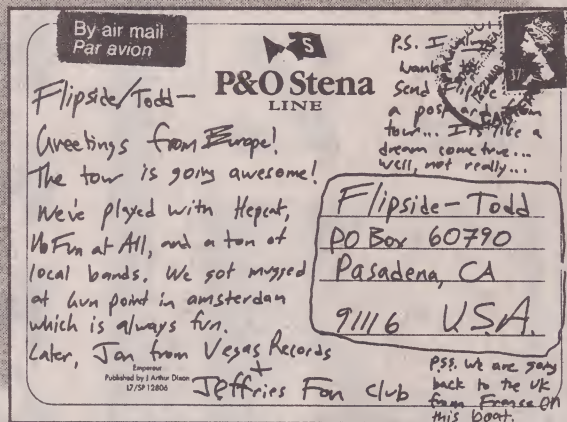 By air mail
Par avion
S
P&O Stena
LINE
Flipside/Todd—
Greetings from Europe!
The tour is going awesome!
We've played with Hepcat,
No Fun at All, and a ton of
local bands. We got mugged
at Gun point in amsterdam
which is always fun.
Later, Jon from Vegas Records
+
Jeffries Fan Club
Empereur
Published by J Arthur Dixon
L7/SP 12806
P.S. I
wanted to
send Flipside
a postcard from
tour... It's like a
dream come true...
well, not really...
37
Flipside-Todd
PO Box 60790
Pasadena, CA
91116 U.S.A.
P.S.S. we are going
back to the UK
from France on
this boat.